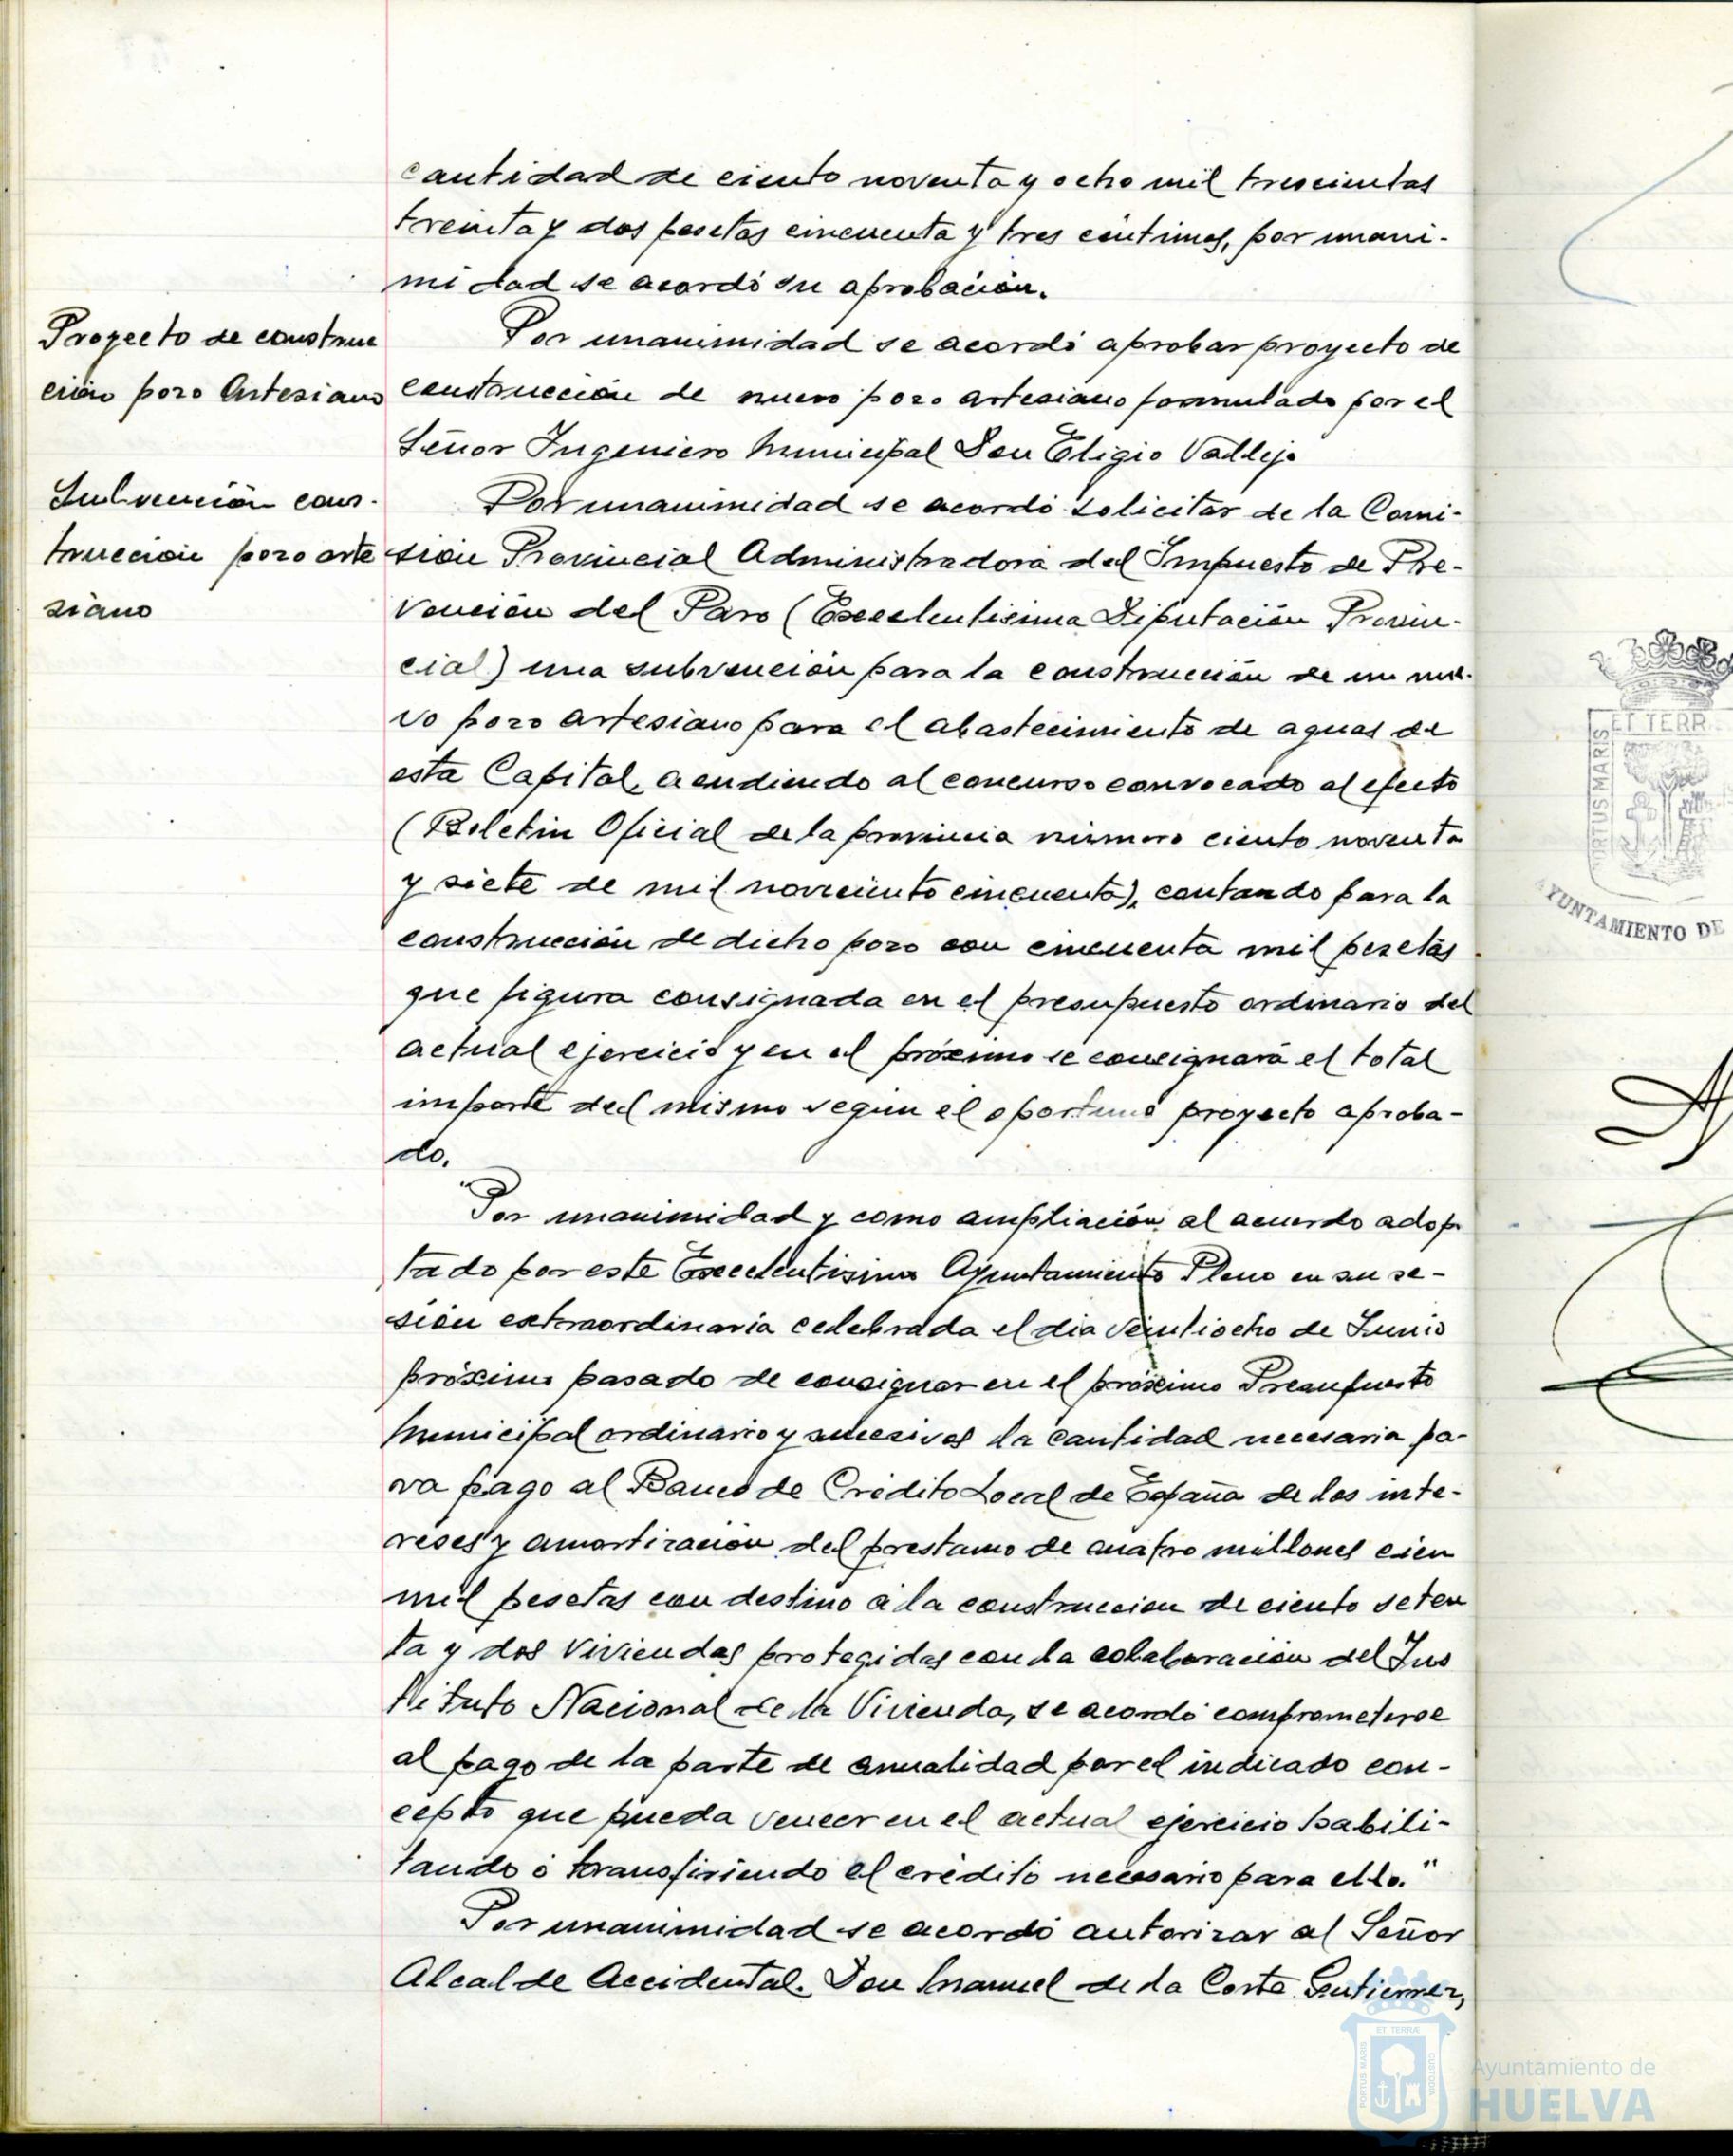 cantidad de ciento noventa y ocho mil trescientas
treinta y dos pesetas cincuenta y tres céntimos, por unani-
midad se acordó su aprobación.
Proyecto de construc
ción pozo Artesiano
Por unanimidad se acordó aprobar proyecto de
construcción de nuevo pozo artesiano formulado por el
Señor Ingeniero Municipal Don Eligio Vallejo
Subvención cons-
trucción pozo arte
siano
Por unanimidad se acordó solicitar de la Comi-
sión Provincial Administradora del Impuesto de Pre-
vención del Paro (Excelentísima Diputación Provin-
cial) una subvención para la construcción de un nue-
vo pozo artesiano para el abastecimiento de aguas de
esta Capital, acudiendo al concurso convocado al efecto
(Boletin Oficial de la provincia número ciento noventa
y siete de mil noveciento cincuenta), contando para la
construcción de dicho pozo con cincuenta mil pesetas
que figura consignada en el presupuesto ordinario del
actual ejercicio y en el próximo se consignará el total
importe del mismo según el oportuno proyecto aproba-
do.
"Por unanimidad y como ampliación al acuerdo adop
tado por este Excelentísimo Ayuntamiento Pleno en su se-
sión extraordinaria celebrada el dia veintiocho de Junio
próximo pasado de consignar en el próximo Presupuesto
Municipal ordinario y sucesivos la cantidad necesaria pa-
ra pago al Banco de Crédito Local de España de los inte-
reses y amortización del prestamo de cuatro millones cien
mil pesetas con destino á la construccion de ciento seten
ta y dos viviendas protegidas con la colaboracion del Ins
tituto Nacional de la Vivienda, se acordó comprometerse
al pago de la parte de anualidad por el indicado con-
cepto que pueda vencer en el actual ejercicio habili-
tando ó transfiriendo el crédito necesario para ello."
Por unanimidad se acordó autorizar al Señor
Alcalde Accidental. Don Manuel de la Corte Gutierrez,
ET TERR
PORTUS MARIS
AYUNTAMIENTO DE
ET TERRÆ
PORTUS MARIS
CUSTODIA
Ayuntamiento de
HUELVA